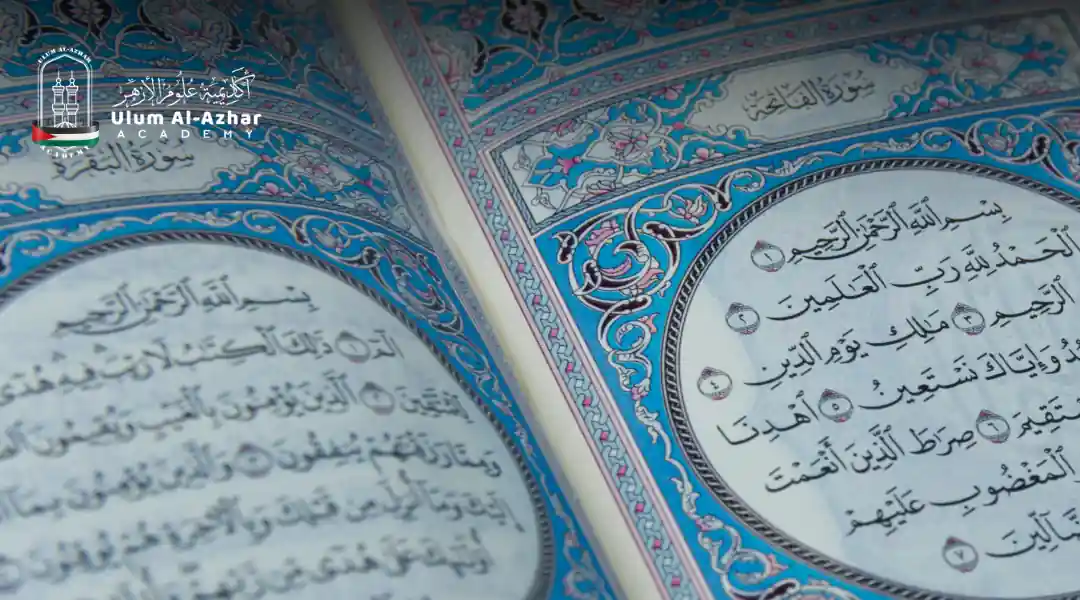 ULUM AL-AZHAR
ACADEMY
أكاديمية علوم الأزهر
Ulum Al-Azhar
ACADEMY
سُورَةُ الفَاتِحَةِ
بِسْمِ ٱللَّهِ ٱلرَّحْمَٰنِ ٱلرَّحِيمِ ١
ٱلْحَمْدُ لِلَّهِ رَبِّ ٱلْعَٰلَمِينَ ٢
ٱلرَّحِيمِ ٣ مَٰلِكِ يَوْمِ ٱلدِّينِ ٤
وَإِيَّاكَ نَسْتَعِينُ ٥ ٱهْدِنَا
ـتَقِيمَ ٦ صِرَٰطَ ٱلَّذِينَ أَنْعَمْتَ
ٱلْمَغْضُوبِ عَلَيْهِمْ
ـضَّآلِّينَ ٧
سُورَةُ البَقَرَةِ
بِسْمِ ٱللَّهِ ٱلرَّحْمَٰنِ ٱلرَّحِيمِ
الٓمٓ ١ ذَٰلِكَ ٱلْكِتَٰبُ لَا رَيْبَ فِيهِ هُدًى
لِّلْمُتَّقِينَ ٢ ٱلَّذِينَ يُؤْمِنُونَ بِٱلْغَيْبِ وَيُقِيمُونَ
وَمِمَّا رَزَقْنَٰهُمْ يُنفِقُونَ ٣ وَٱلَّذِينَ يُؤْمِنُونَ بِمَآ
إِلَيْكَ وَمَآ أُنزِلَ مِن قَبْلِكَ وَبِٱلْأٓخِرَةِ هُمْ يُوقِنُونَ
أُو۟لَٰٓئِكَ عَلَىٰ هُدًى مِّن رَّبِّهِمْ